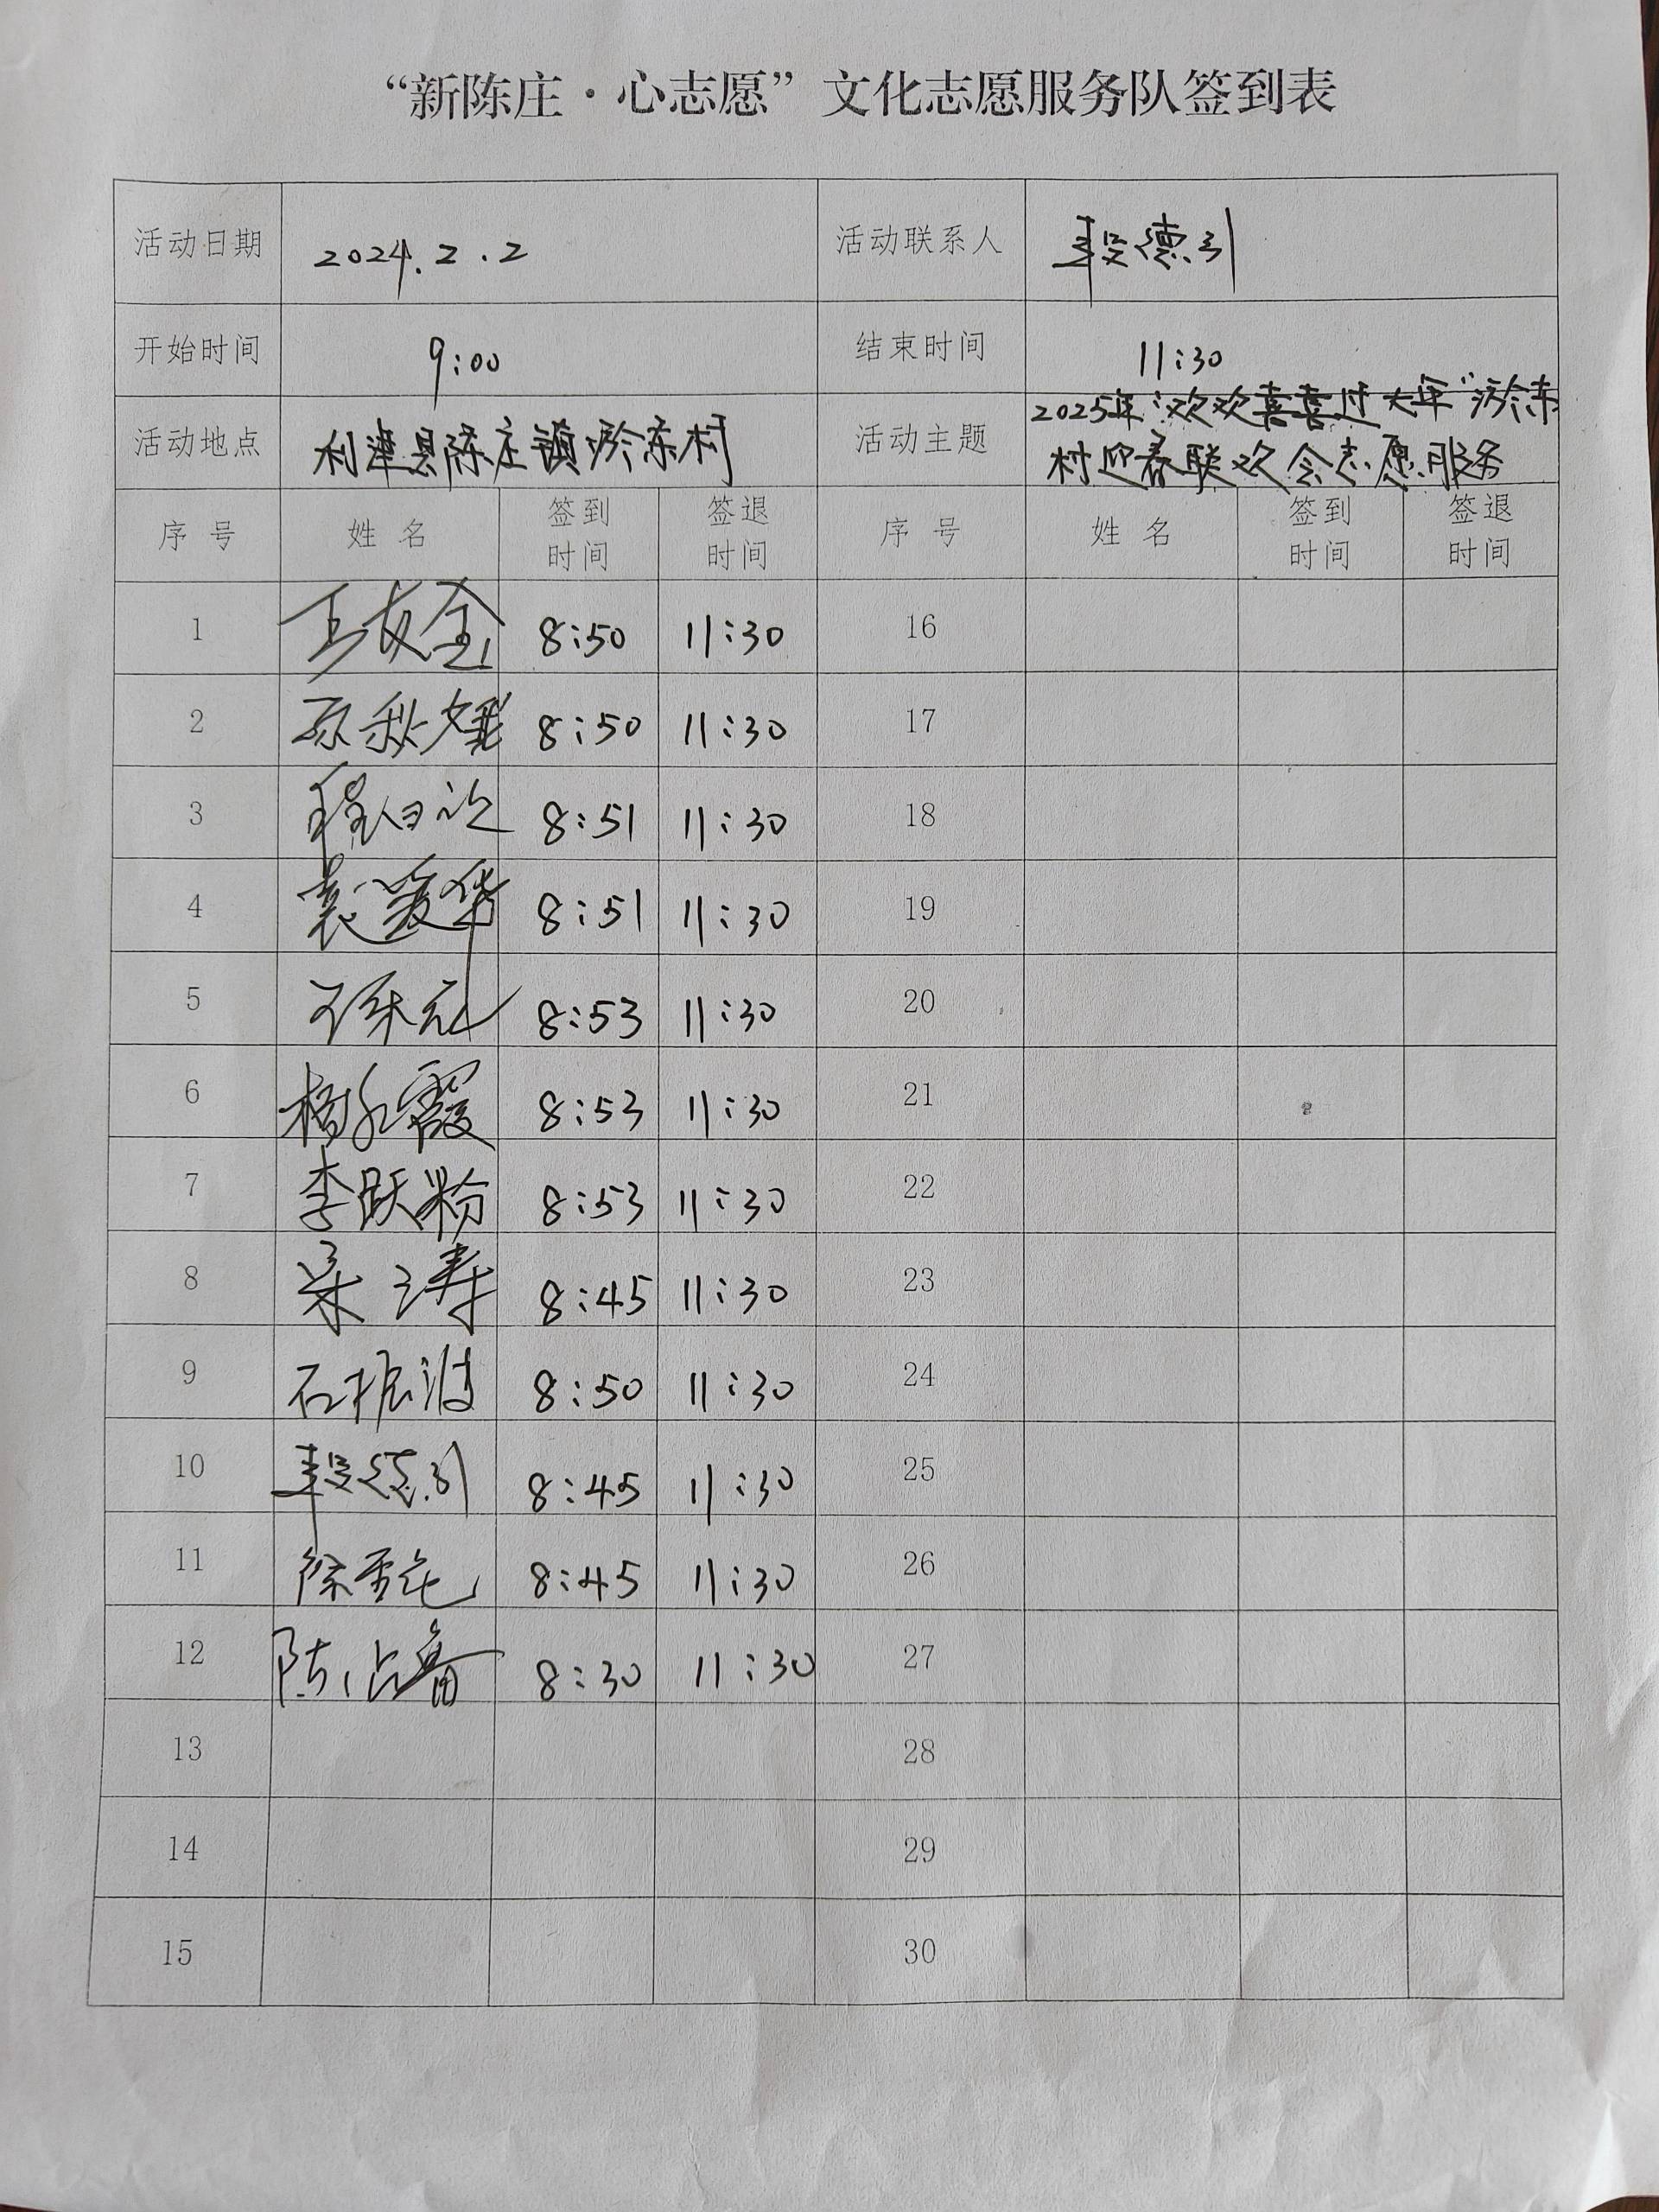 “新陈庄·心志愿”文化志愿服务队签到表
活动日期 2024.2.2 活动联系人 段德引
开始时间 9:00 结束时间 11:30
活动地点 利津县陈庄镇 东村 活动主题 2025年“欢欢喜喜过大年” 东
村迎春联欢会志愿服务
序号 姓名 签到时间 签退时间 序号 姓名 签到时间 签退时间
1 王友全 8:50 11:30 16
2 8:50 11:30 17
3 8:51 11:30 18
4 袁爱华 8:51 11:30 19
5 8:53 11:30 20
6 杨永霞 8:53 11:30 21
7 李跃粉 8:53 11:30 22
8 梁涛 8:45 11:30 23
9 石振波 8:50 11:30 24
10 段德引 8:45 11:30 25
11 8:45 11:30 26
12 8:30 11:30 27
13 28
14 29
15 30